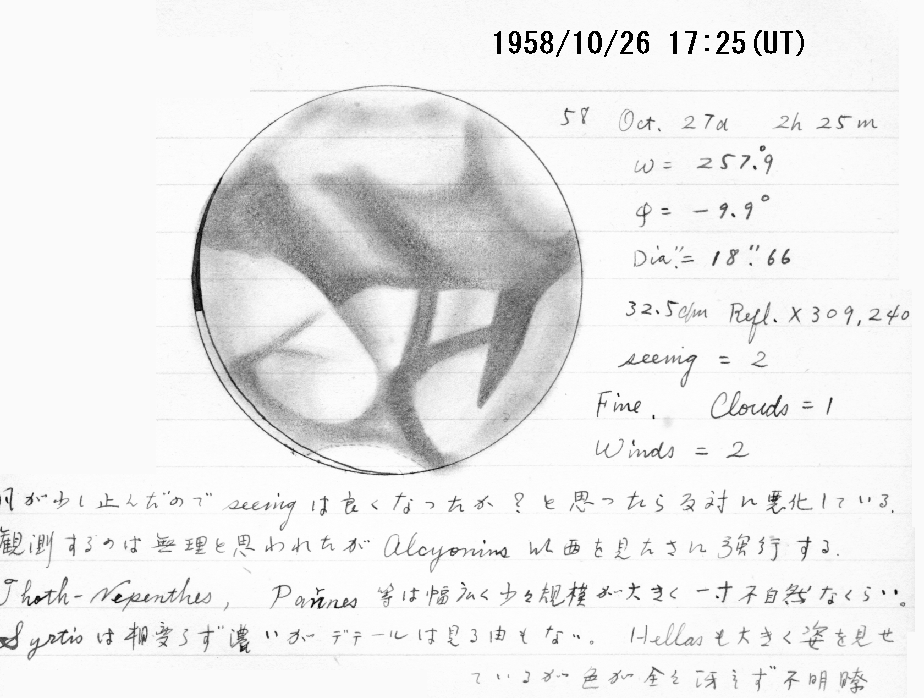 1958/10/26 17:25(UT)
58 Oct. 27d 2h 25m
ω = 257.°9
φ = -9.9°
Dia. = 18".66
32.5cm Refl. X 309, 240
seeing = 2
Fine, Clouds = 1
Winds = 2
が少し止んだので seeing は良くなったか?と思ったら反対に悪化している.
観測するのは無理と思われたが Alcyonius 以西を見たさに強行する.
Thoth-Nepenthes, 等は幅広く少々規模が大きく一寸不自然なくらい。
Syrtis は相変らず濃いがデテールは見る由もない。 Hellas も大きく姿を見せ
ているが色が全く冴えず不明瞭